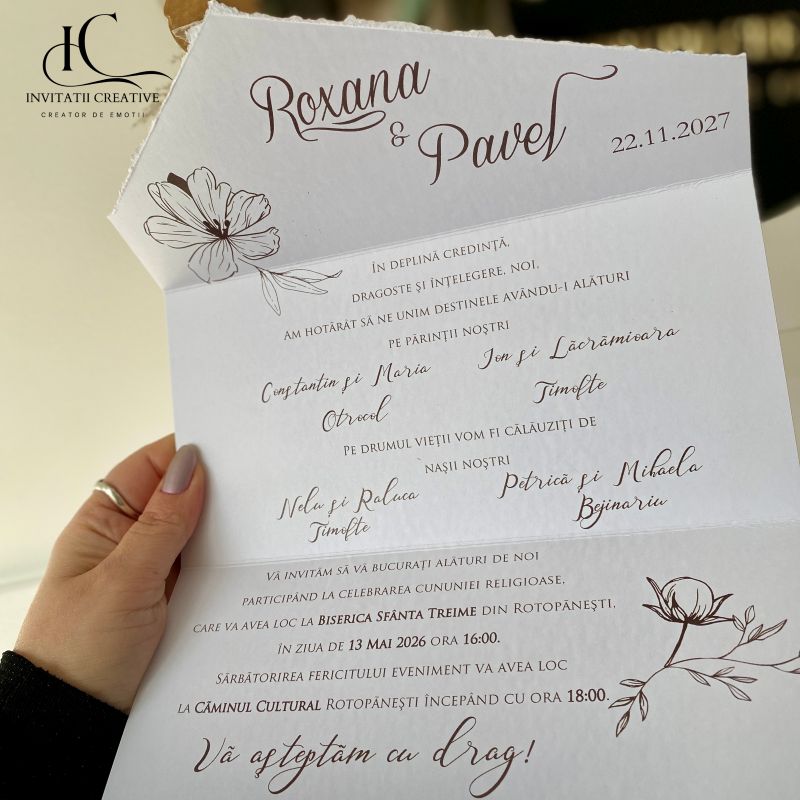 IC
INVITATII CREATIVE
CREATOR DE EMOTII
Roxana
& Pavel
22.11.2027
ÎN DEPLINĂ CREDINȚĂ,
DRAGOSTE ȘI ÎNȚELEGERE, NOI,
AM HOTĂRÂT SĂ NE UNIM DESTINELE AVÂNDU-I ALĂTURI
PE PĂRINȚII NOȘTRI
Constantin și Maria
Otrocol
Ion și Lăcrămioara
Timofte
PE DRUMUL VIEȚII VOM FI CĂLĂUZIȚI DE
NAȘII NOȘTRI
Nelu și Raluca
Timofte
Petrică și Mihaela
Bejinariu
VĂ INVITĂM SĂ VĂ BUCURAȚI ALĂTURI DE NOI
PARTICIPÂND LA CELEBRAREA CUNUNIEI RELIGIOASE,
CARE VA AVEA LOC LA BISERICA SFÂNTA TREIME DIN ROTOPĂNEȘTI,
ÎN ZIUA DE 13 MAI 2026 ORA 16:00.
SĂRBĂTORIREA FERICITULUI EVENIMENT VA AVEA LOC
LA CĂMINUL CULTURAL ROTOPĂNEȘTI ÎNCEPÂND CU ORA 18:00.
Vă așteptăm cu drag!